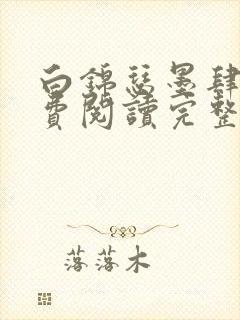 白錦瑟墨肆
費閱讀完整
落落木